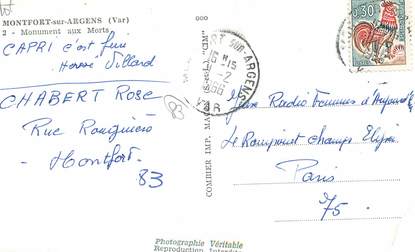 MONTFORT-sur-ARGENS (Var)
2 - Monument aux Morts
CAPRI c'est fini
Hervé Villard
CHABERT Rose
Rue
Montfort
83
83
COMBIER IMP. MACON (S.-et-L.) "CIM"
MONTFORT SUR ARGENS
VAR
0,30
Jeux Radio Femmes d'Aujourd'hui
Le Rond point Champs Elysées
Paris
75
Photographie Véritable
Reproduction Interdite